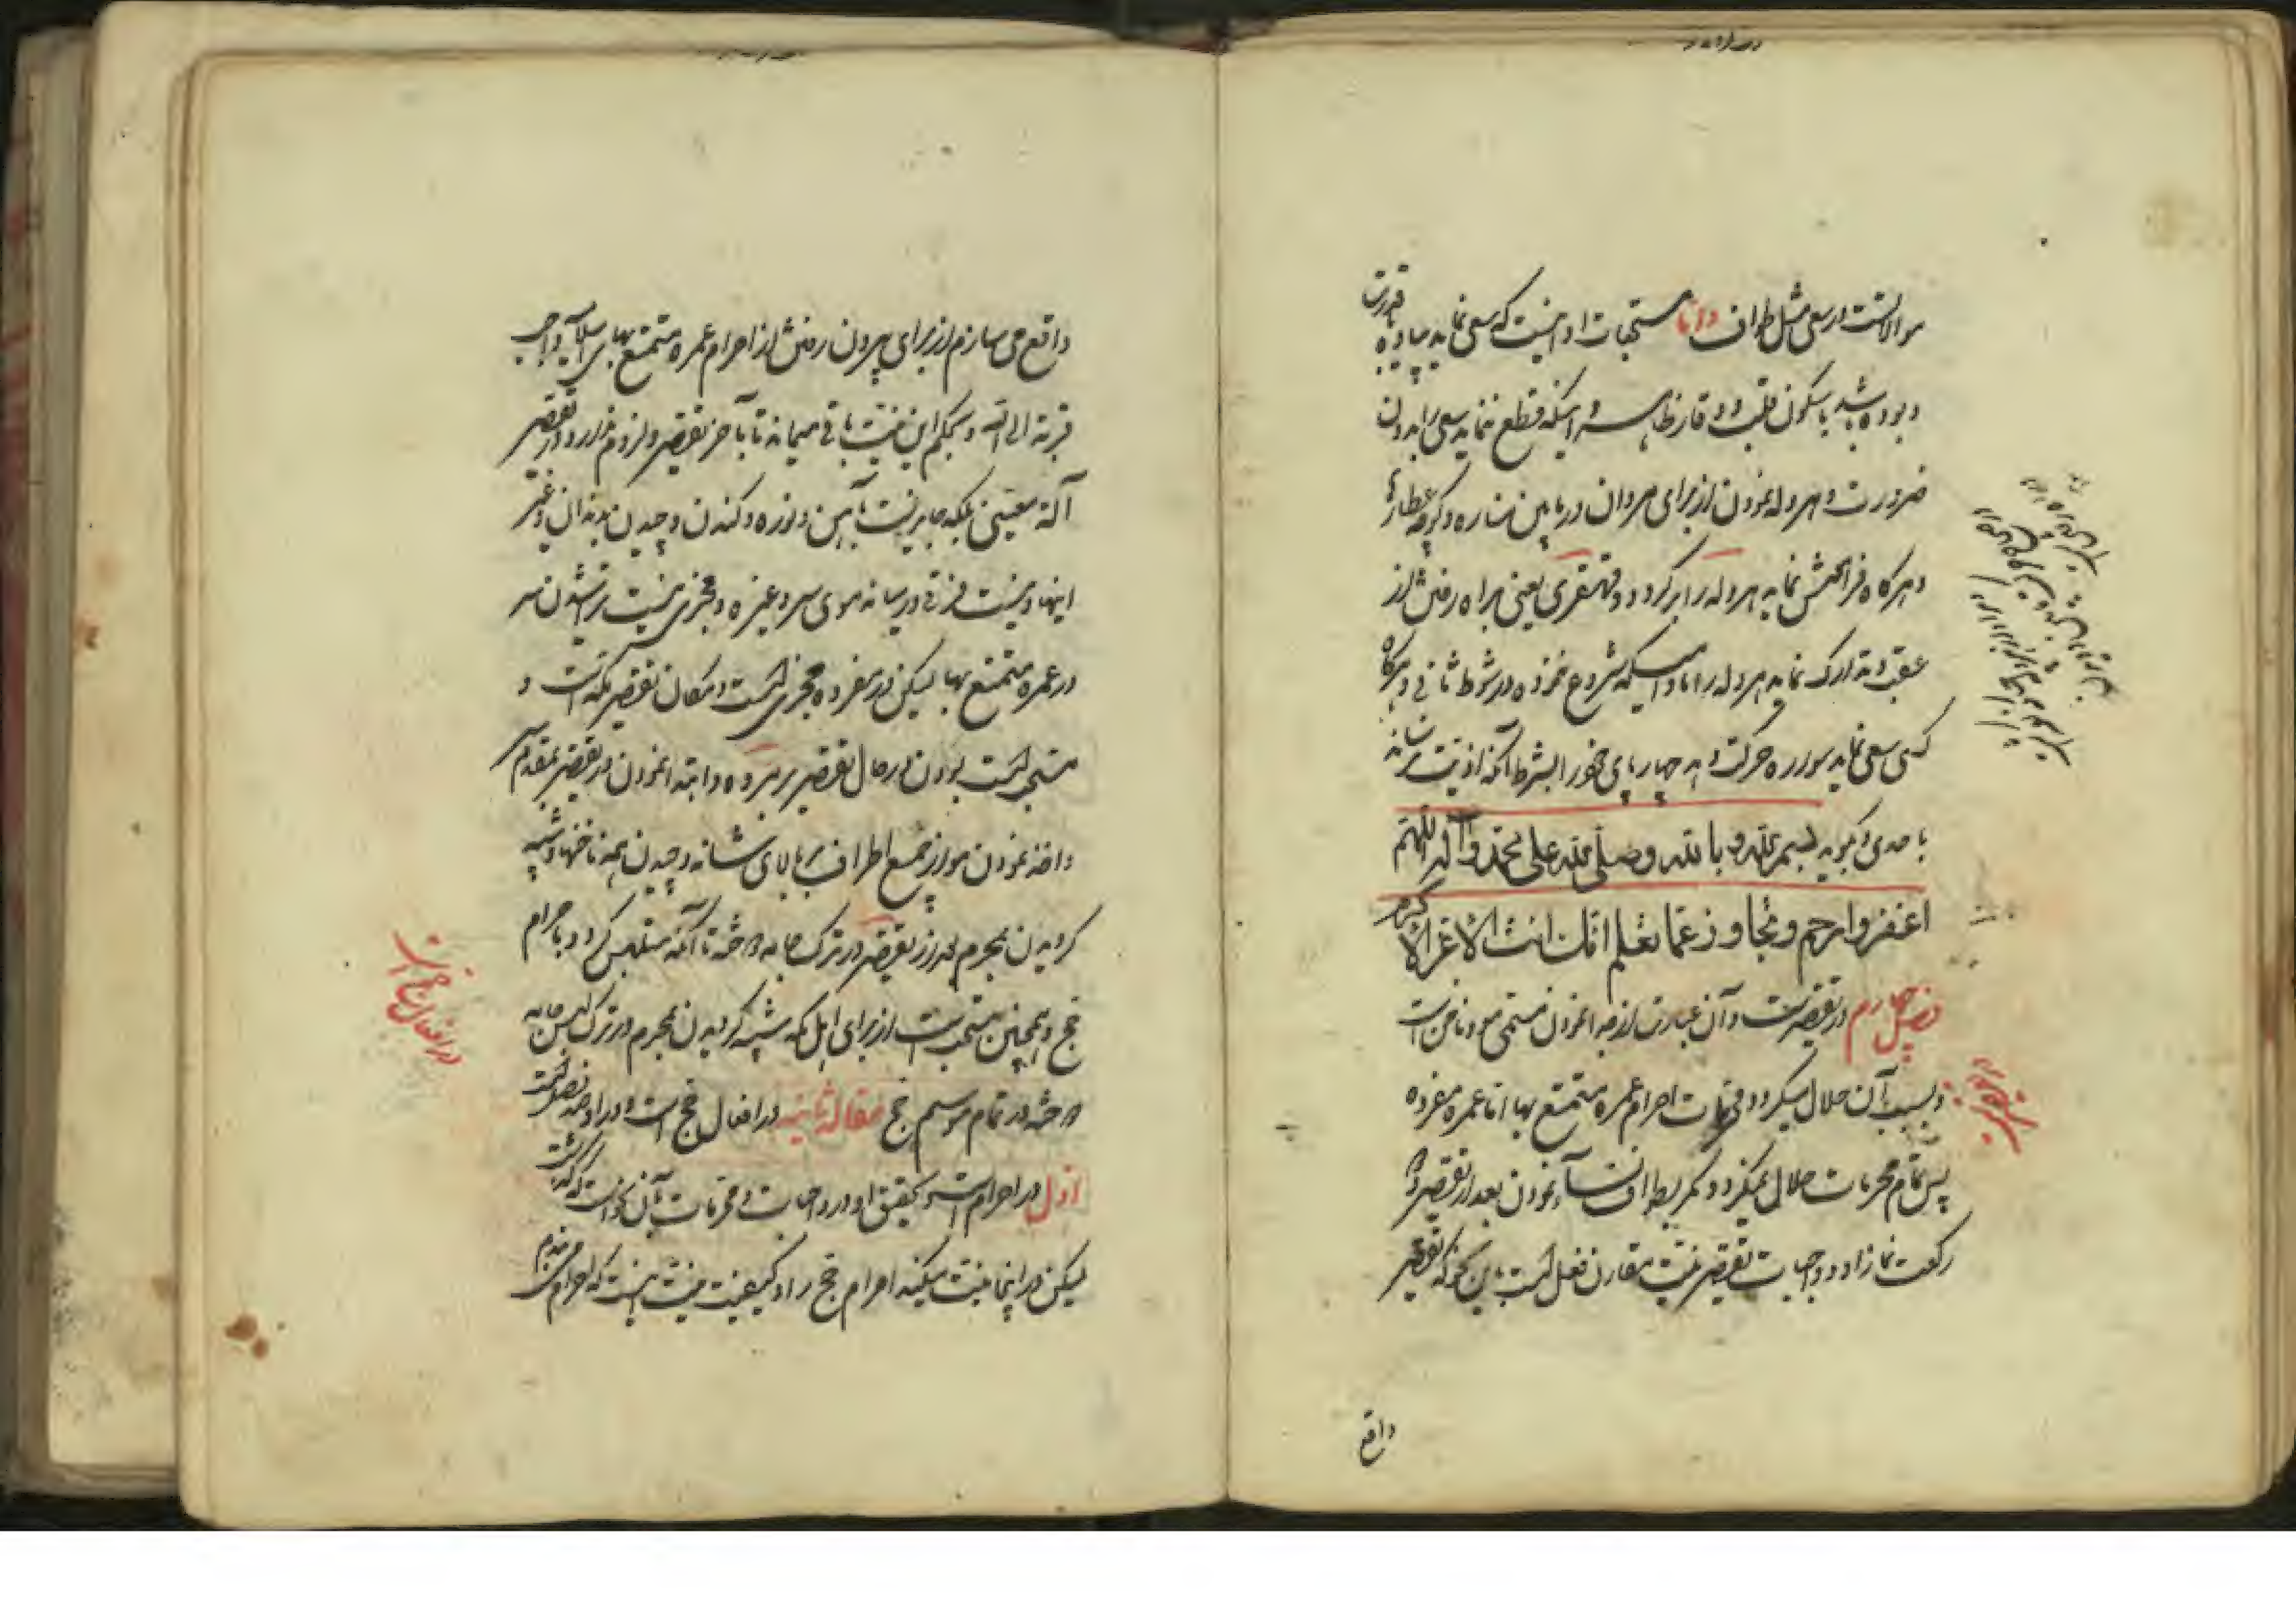 موالاتست در سعی مثل طواف و اما مستحبات او اینست که سعی نماید پیاده
و بوده باشد با سکون قلب و وقار ظاهر و اینکه قطع ننماید سعی را بدون
ضرورت و هروله نمودن از برای مردان در مابین مناره و کوچه عطاران
و هرگاه فرامش نماید هروله را برگردد قهقری یعنی براه رفتن از
عقب و تدارک نماید هروله را مادامیکه شروع نموده در شوط ثانی و هرگاه
کسی سعی نماید سواره حرکت دهد چهارپای خود را بشرط آنکه اذیت نرساند
باحدی و بگوید بسم الله و بالله وصلی الله علی محمد وآله اللهم
اغفر وارحم وتجاوز عما تعلم انك انت الاعز الاکرم
فصل چهارم در تقصیرست و آن عبارت از جدا نمودن مسمی مو و ناخن است
و بسبب آن حلال میگردد احرام عمره متمتع بها اما عمره مفرده
پس تمام محرمات حلال نمیگردد مگر بطواف نساء نمودن بعد از تقصیر
رکعت نماز او و واجبات تقصیر نیت مقارن فعل است باین نحو که تقصیر
واقع
واقع می سازم از برای بیرون رفتن از احرام عمره متمتع بها واجب
قربة الی الله و بحکم این نیت باقی میماند تا بآخر تقصیر و لزوم ندارد در تقصیر
آلة معینی بلکه جایزست بآهن و نوره و کندن و چیدن بدندان و غیر
اینها و نیست فرقی در میانه موی سر و غیره و مجزی نیست تراشیدن سر
در عمره متمتع بها لیکن در مفرده مجزی است و مکان تقصیر مکه است و
مستحب است بودن در حال تقصیر بر مروه و ابتدا نمودن در تقصیر بمقدم سر
و اخذ نمودن مو از جمیع اطراف سر تا بالای شانه و چیدن همه ناخنها و شبیه
گردیدن بمحرم بعد از تقصیر در ترک جامه دوخته تا آنکه متلبس گردد باحرام
حج و همچنین مستحبست از برای اهل مکه شبیه گردیدن بمحرم در ترک لبس جامه
دوخته در تمام موسم حج مقاله ثانیه در افعال حج است و در او چند فصل است
اول در احرام است و تحقیق او در واجبات و محرمات بآن نحو است که گذشت
لیکن در اینجا نیت میکند احرام حج را و کیفیت نیت اینست که احرام می بندم
در افعال حج است